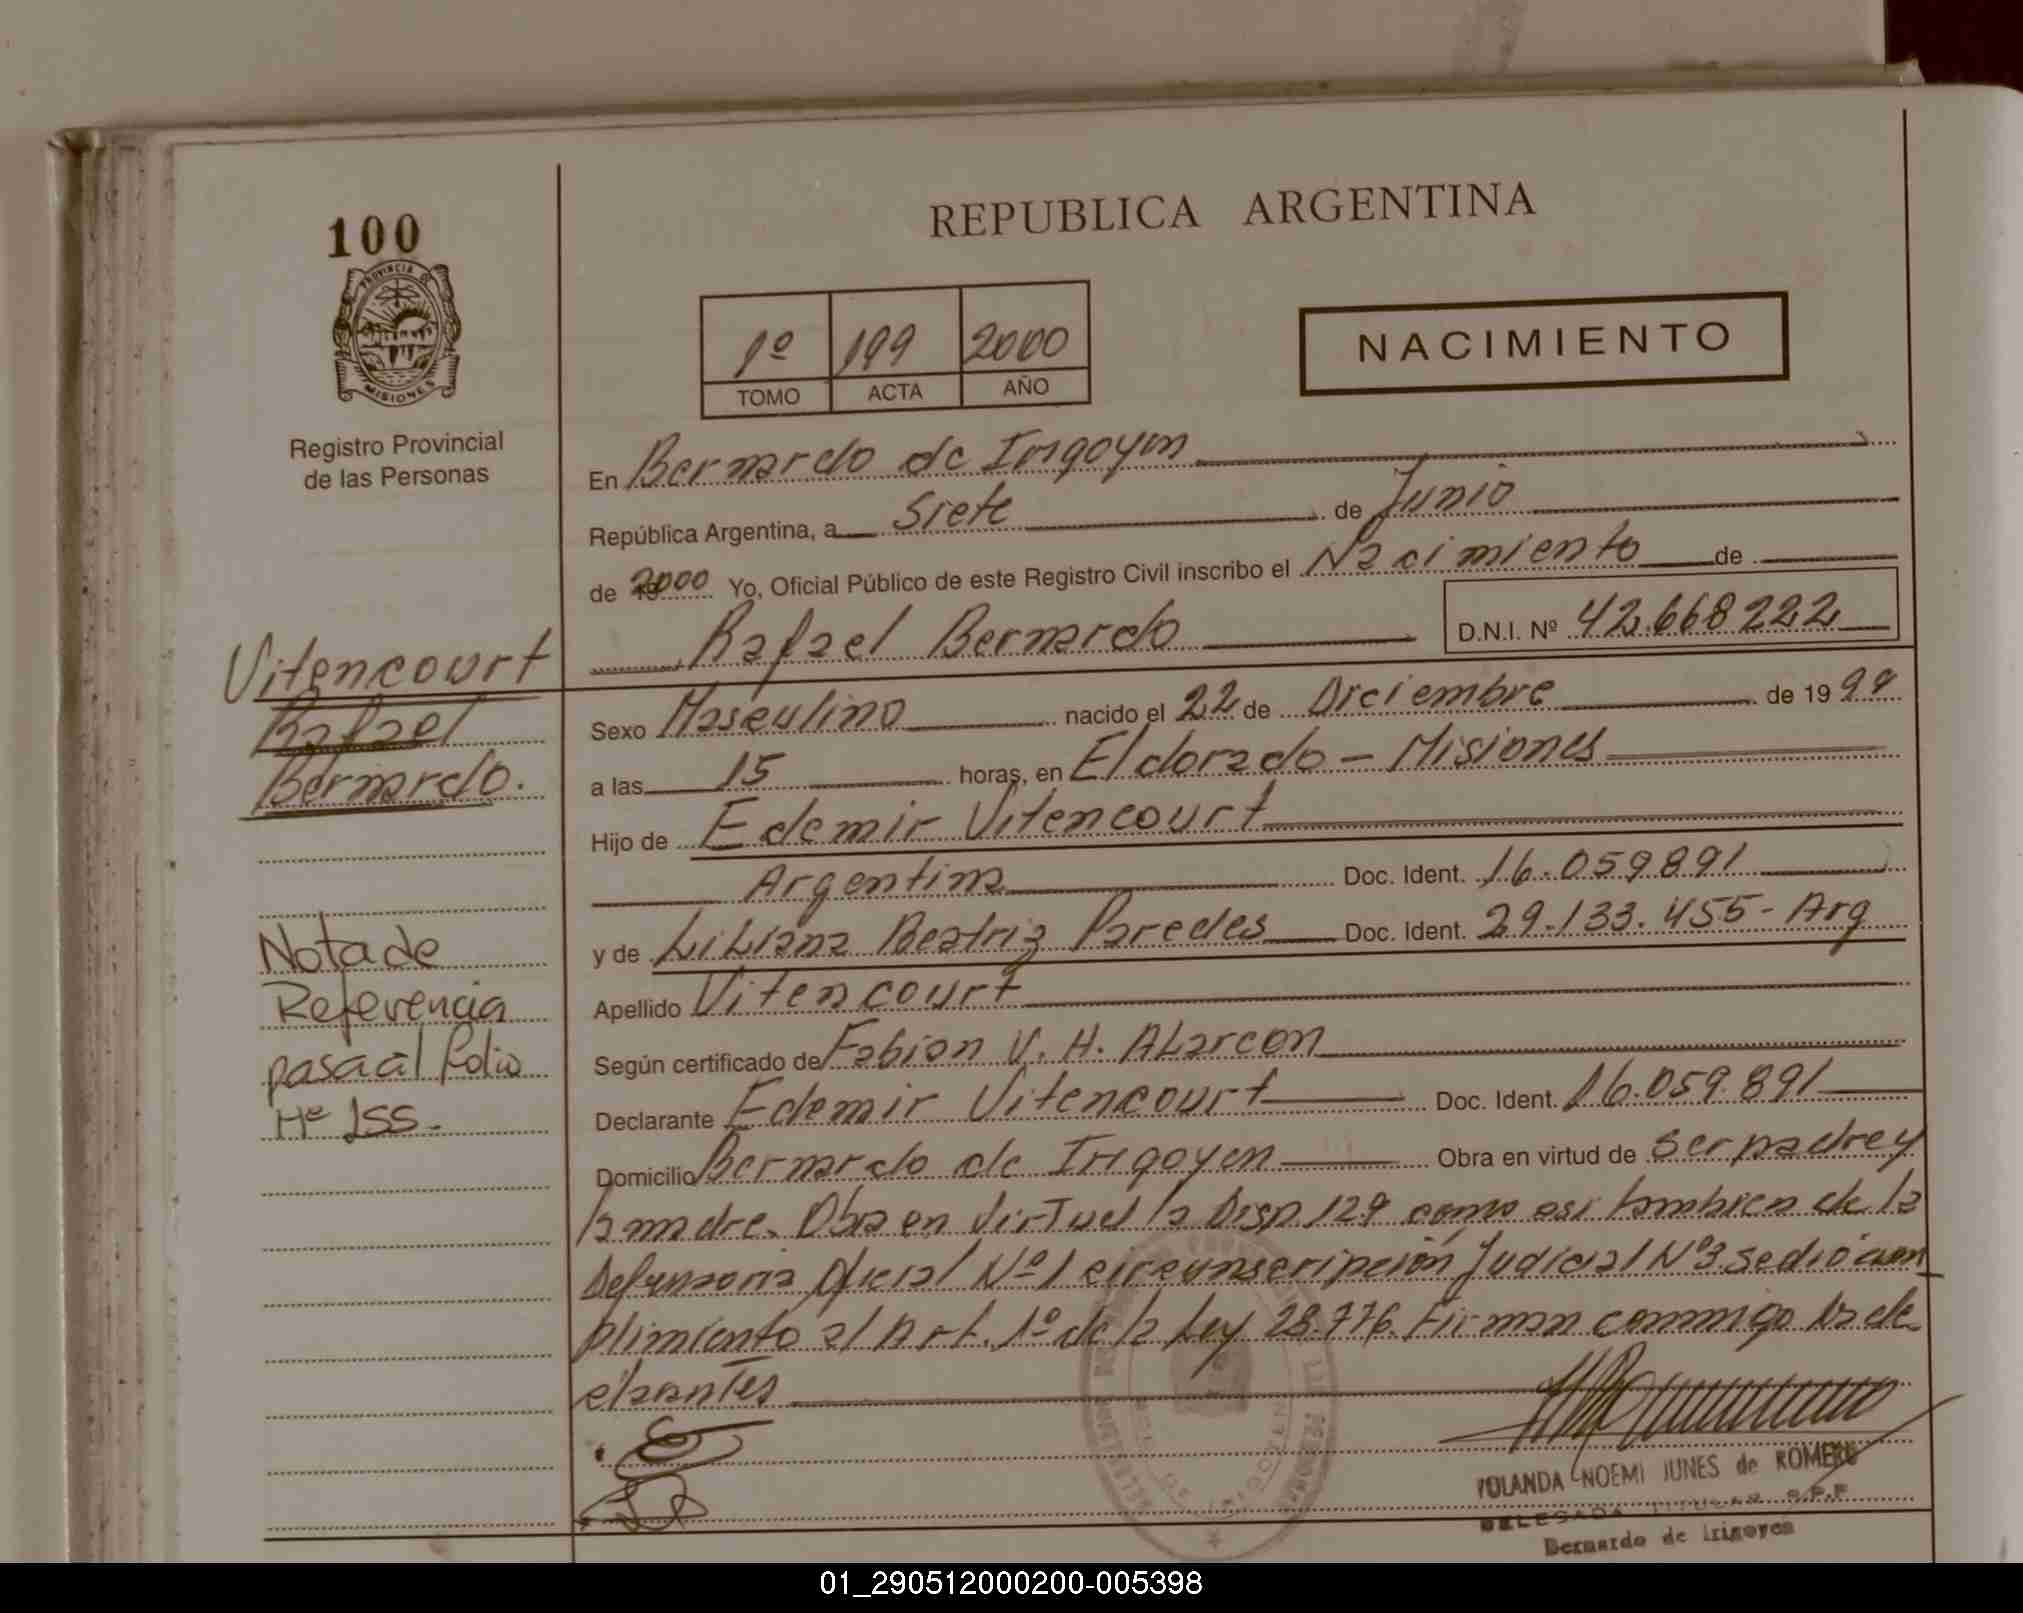 100
PROVINCIA DE
MISIONES
Registro Provincial
de las Personas
REPUBLICA ARGENTINA
1º 199 2000
TOMO ACTA AÑO
NACIMIENTO
En Bernardo de Irigoyen
República Argentina, a Siete de Junio
de 2000 Yo, Oficial Público de este Registro Civil inscribo el Nacimiento de
Rafael Bernardo D.N.I. Nº 42.668222
Vitencourt
Rafael
Bernardo.
Sexo Masculino nacido el 22 de Diciembre de 1999
a las 15 horas, en Eldorado - Misiones
Hijo de Edemir Vitencourt
Argentina Doc. Ident. 16.059891
y de Liliana Beatriz Paredes Doc. Ident. 29.133.455- Arg
Apellido Vitencourt
Según certificado de Fabian V. H. Alarcon
Declarante Edemir Vitencourt Doc. Ident. 16.059.891
Domicilio Bernardo de Irigoyen Obra en virtud de ser padre y
la madre. Obra en virtud la Disp. 129 como asi tambien de la
Defensoria Oficial Nº1 circunscripción Judicial Nº3 se dió cum
plimiento al Art. 1º de la Ley 28.776. Firman conmigo los de
clarantes
Nota de
Referencia
pasa al folio
Nº 155.
YOLANDA NOEMI JUNES de ROMERO
DELEGADA TITULAR R.P.P
Bernardo de Irigoyen
01_290512000200-005398